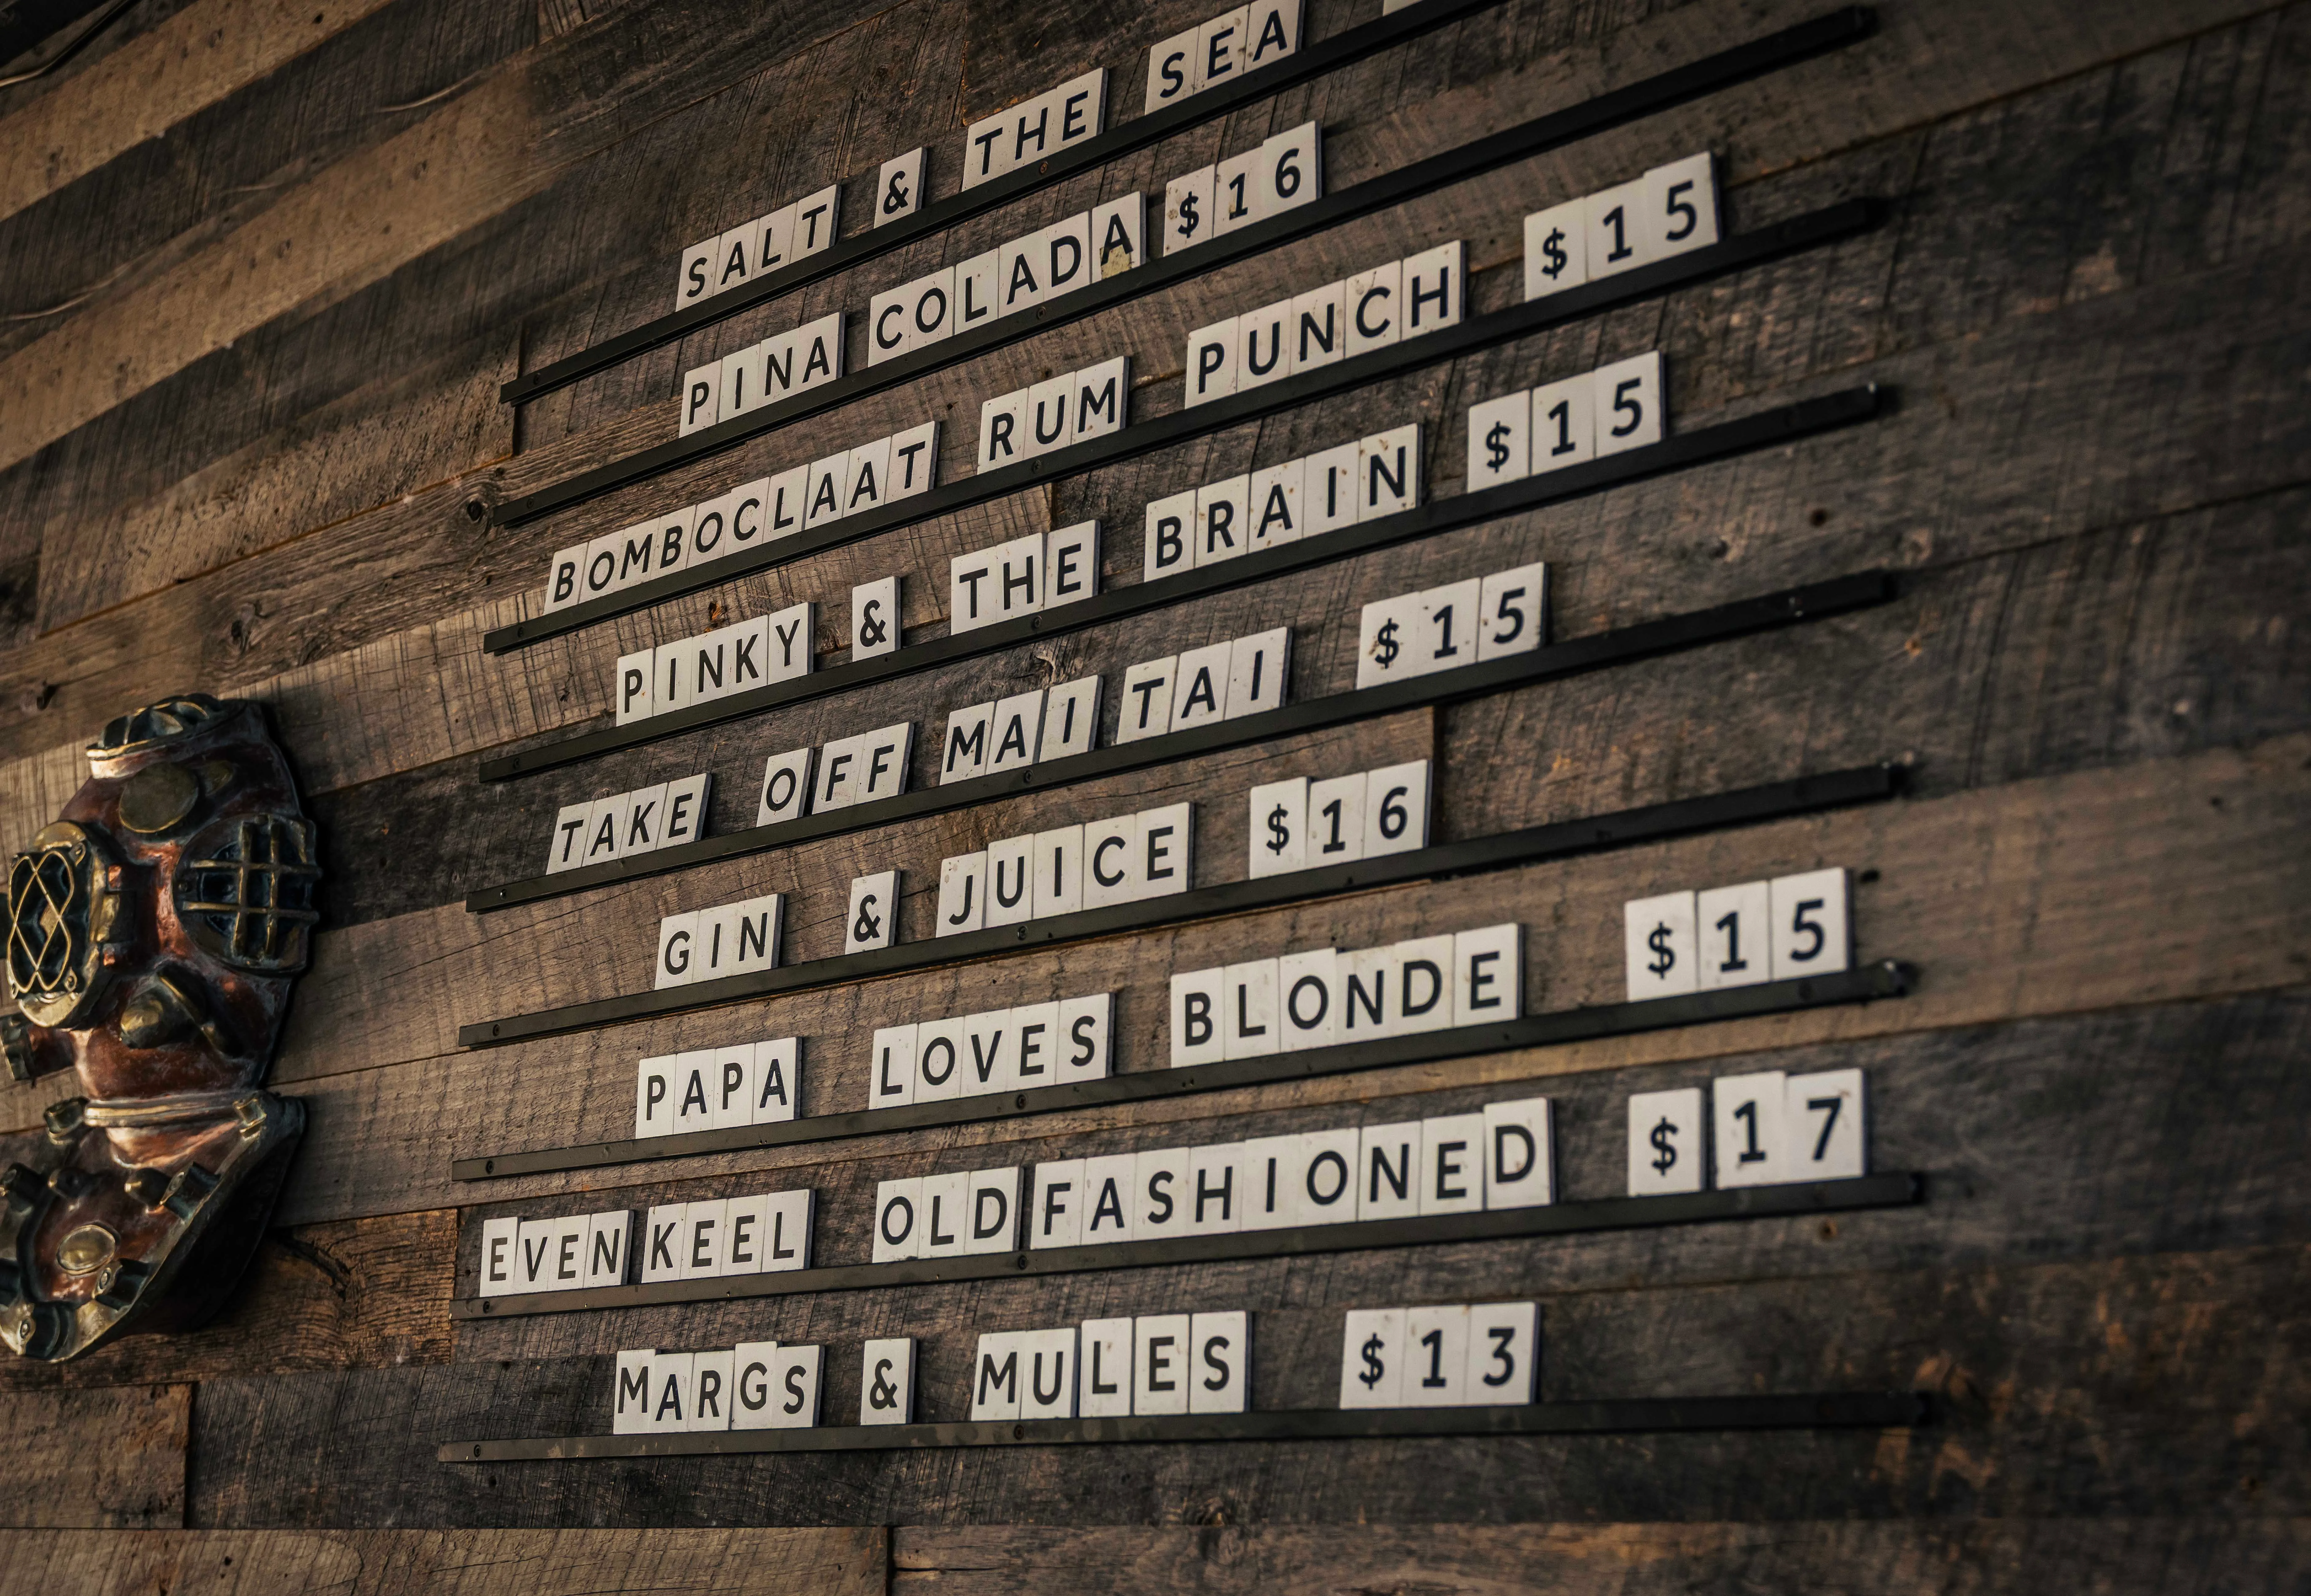 SALT & THE SEA
PINA COLADA $16
BOMBOCLAAT RUM PUNCH $15
PINKY & THE BRAIN $15
TAKE OFF MAI TAI $15
GIN & JUICE $16
PAPA LOVES BLONDE $15
EVEN KEEL OLD FASHIONED $17
MARGS & MULES $13